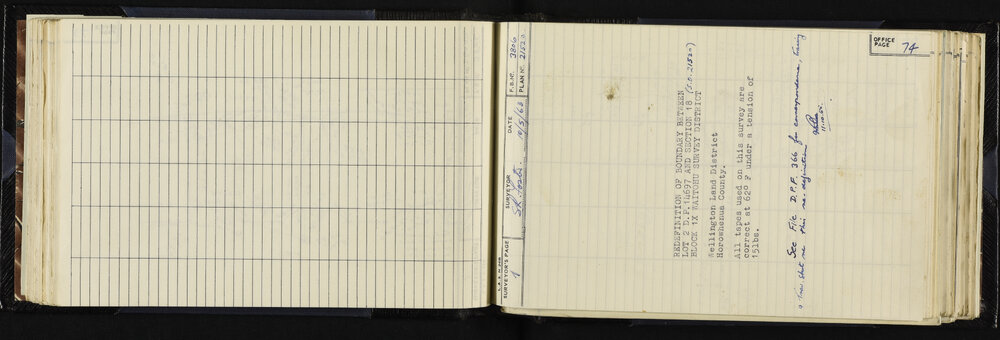 OFFICE
PAGE 74
L. & S. N.Z.
SURVEYOR'S PAGE 1
SURVEYOR
DATE 10/5/63
F.B. No. 3806
PLAN No. 21520
REDEFINITION OF BOUNDARY BETWEEN
LOT 2 D.P.14697 AND SECTION 18 (S.O. 21520)
BLOCK 1X WAITOHU SURVEY DISTRICT
Wellington Land District
Horowhenua County.
All tapes used on this survey are
correct at 62° F under a tension of
15lbs.
See File D.P.F. 366 for correspondence, tracing
& Trav. sheet re this re-definition